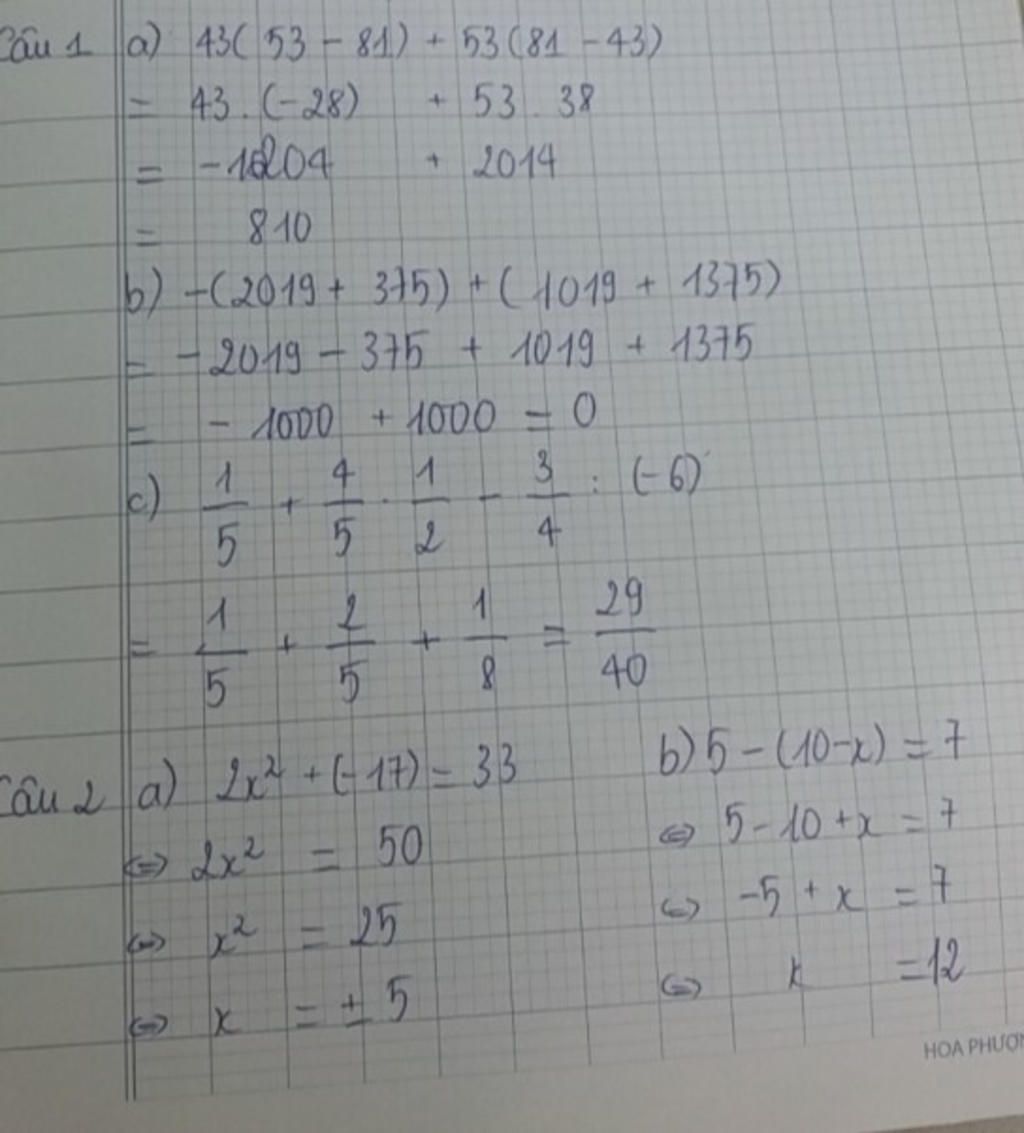 Câu 1 a) 43(53 - 81) + 53(81 - 43)
= 43.(-28) + 53.38
= -1204 + 2014
= 810
b) -(2019 + 375) + (1019 + 1375)
= -2019 - 375 + 1019 + 1375
= -1000 + 1000 = 0
c) 1/5 + 4/5 . 1/2 - 3/4 : (-6)
= 1/5 + 2/5 + 1/8 = 29/40
Câu 2 a) 2x² + (-17) = 33
⇔ 2x² = 50
⇔ x² = 25
⇔ x = ± 5
b) 5 - (10 - x) = 7
⇔ 5 - 10 + x = 7
⇔ -5 + x = 7
⇔ x = 12
HOA